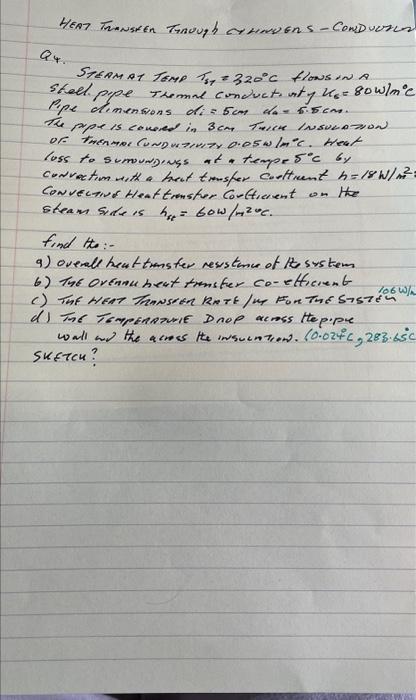 HEAT TRANSFER THROUGH CYLINDERS - CONDUCTION
Q4.
STEAM AT TEMP Tst = 320°C flows IN A
steel pipe Thermal conductivity Ks = 80W/m°C
Pipe dimensions di = 5cm do = 5.5cm.
The pipe is covered in 3cm THICK INSULATION
OF THERMAL CONDUCTIVITY 0.05W/m°C. Heat
loss to surroundings at a temp = 5°C by
convection with a heat transfer coefficient h=18W/m²
CONVECTIVE Heat transfer Coefficient on the
steam side is hst = 60W/m²°C.
find the :-
a) overall heat transfer resistance of the system
b) THE OVERALL heat transfer co-efficient
c) THE HEAT TRANSFER RATE /m FOR THE SYSTEM 106W/m
d) THE TEMPERATURE DROP across the pipe
wall and the across the INSULATION. (0.024°C, 283.65°C
SKETCH?